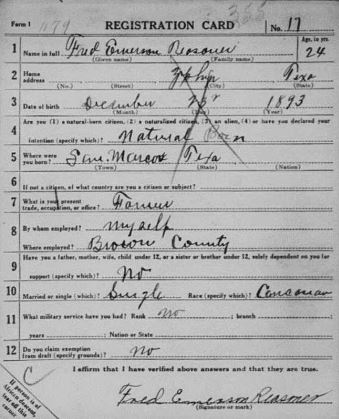 Form 1 REGISTRATION CARD No. 17
1 Name in full Fred Emerson Reasoner Age, in yrs. 24
(Given name) (Family name)
2 Home address Texas
(No.) (Street) (City) (State)
3 Date of birth December 23 1893
(Month) (Day) (Year)
4 Are you (1) a natural-born citizen, (2) a naturalized citizen, (3) an alien, (4) or have you declared your
intention (specify which)? Natural Born
5 Where were you born? San Marcos Texa
(Town) (State) (Nation)
6 If not a citizen, of what country are you a citizen or subject?
7 What is your present trade, occupation, or office? Farmer
8 By whom employed? myself
Where employed? Brown County
9 Have you a father, mother, wife, child under 12, or a sister or brother under 12, solely dependent on you for
support (specify which)? No
10 Married or single (which)? Single Race (specify which)? Caucasian
11 What military service have you had? Rank no ; branch
years ; Nation or State
12 Do you claim exemption from draft (specify grounds)? No
I affirm that I have verified above answers and that they are true.
C
If person is of African descent, tear off this corner
Fred Emerson Reasoner
(Signature or mark)